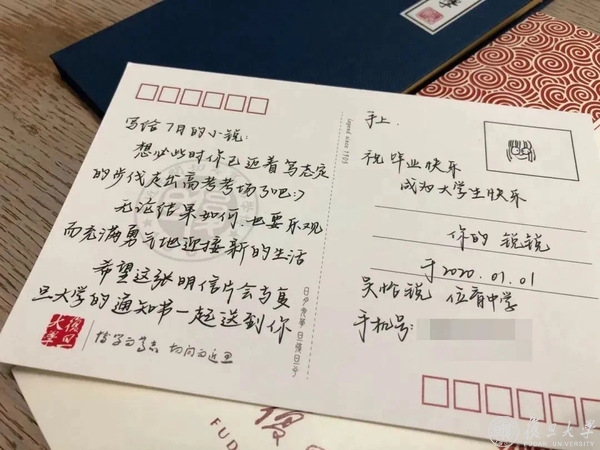 写给7月的小锐:
想必此时你已迈着笃志定
的步伐走出高考考场了吧:)
无论结果如何,也要乐观
而充满勇气地迎接新的生活
希望这张明信片会与复
旦大学的通知书一起送到你
手上.
祝毕业快乐
成为大学生快乐
你的 锐锐
于2020.07.01
位育中学
手机号:
復旦
大學
博学而笃志 切问而近思
日月光華 旦復旦兮
Legend since 1905
復旦大學
FUDAN UNIVERSITY
FUD